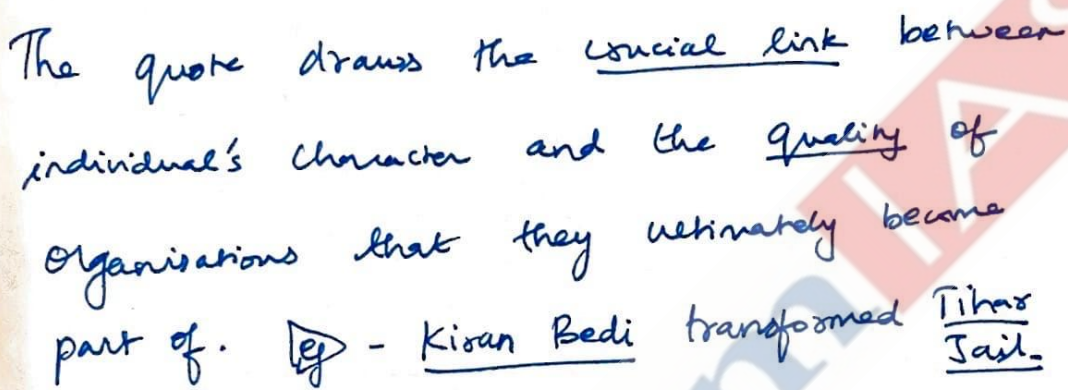 The quote draws the crucial link between
individual's character and the quality of
organisations that they ultimately become
part of. eg - Kiran Bedi transformed Tihar
Jail.